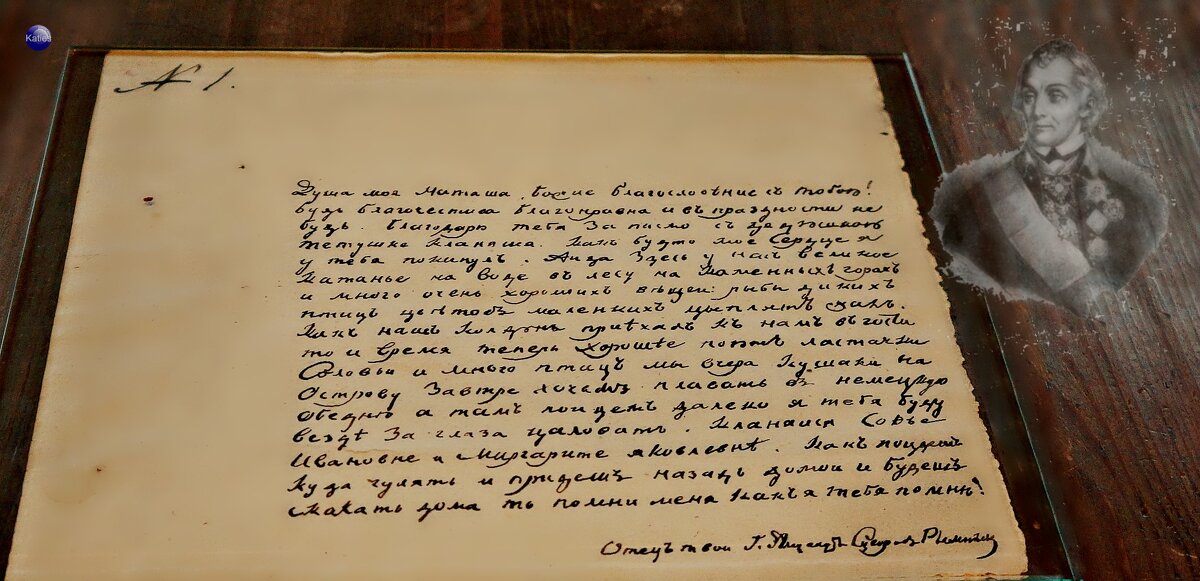 Katies
№ 1.
Душа моя Наташа, божие благословение съ тобою!
будь благочестива благонравна и въ праздности не
будь. благодарю тебя за писмо съ дядюшкою
тетушке кланяися. какъ будто мое Сердце я
у тебя покинулъ. Аида здесь у насъ великое
катанье на воде въ лесу на каменныхъ горахъ
и много очень хорошихъ вещеи: рибы дикихъ
птицъ цветовъ маленкихъ цыплятъ
какъ нашъ приѣхалъ къ намъ въ гости
то и время теперь хорошѣе поютъ ластачки
Соловьи и много птицъ мы вчера кушали на
Острову Завтре хочемъ плавать въ немецкую
обедню а тамъ поидемъ далеко я тебя буду
вездѣ за глаза цаловать. кланаися Софье
Ивановне и Маргарите яковлевнѣ. какъ поидешъ
куда гулять и придешъ назадъ домои и будешъ
скакать дома то помни меня какъ я тебя помню!
Отецъ твои Г. Суворовъ Рымникски